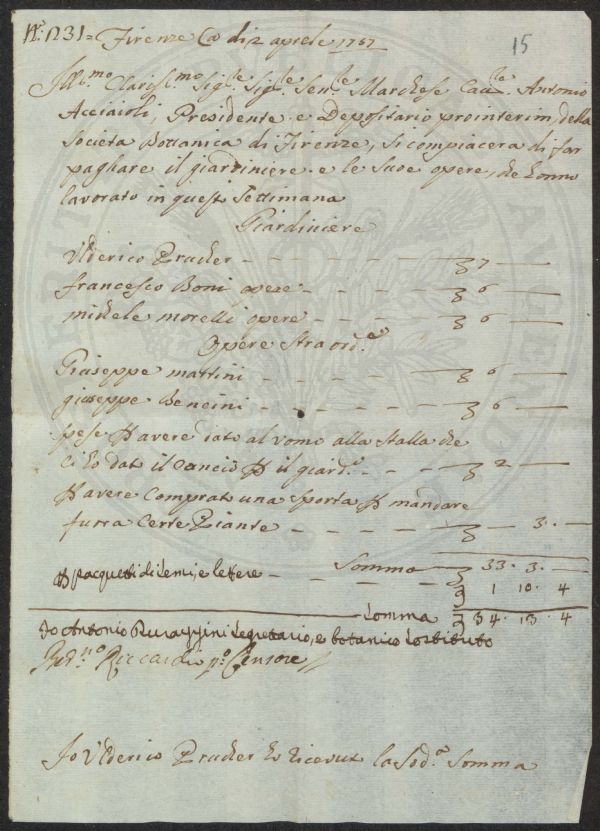 N.º 1231= Firenze @ di 2 aprele 1757
15
Ill.mo Claris.mo Sig.le Sig.le Sen.le Marchese Cav.le Antonio
Acciaioli, Presidente e Depositario prointerim, della
Società Bottanica di Firenze, si compiacera di far
pagliare il giardiniere e le Sue opere, che hanno
lavorato in questi Settimana
Giardiniere
Ulderico Prucher - - - - - - 7 —
francesco Boni opere - - - - - 6 —
michele morelli opere - - - - - 6 —
Opere Straord.e
Giuseppe mattini - - - - - 6 —
giuseppe Bencini - - - - - 6 —
pese P avere dato al vomo alla Stalla che
ci ho dato il Concio P il giard.e - - - 2 —
P avere Comprato una Sporta P mandare
furra Certe Piante - - - - - - 3. —
Somma 33. 3. —
P pacquetti di Semi, e lettere - - - - 1 10. 4
Somma 34. 13 4
Io Antonio Segretario, e botanico Sostituto
Riccardi p.º Censore
Io Ulderico Prucher ho ricevut la Sod.a Somma